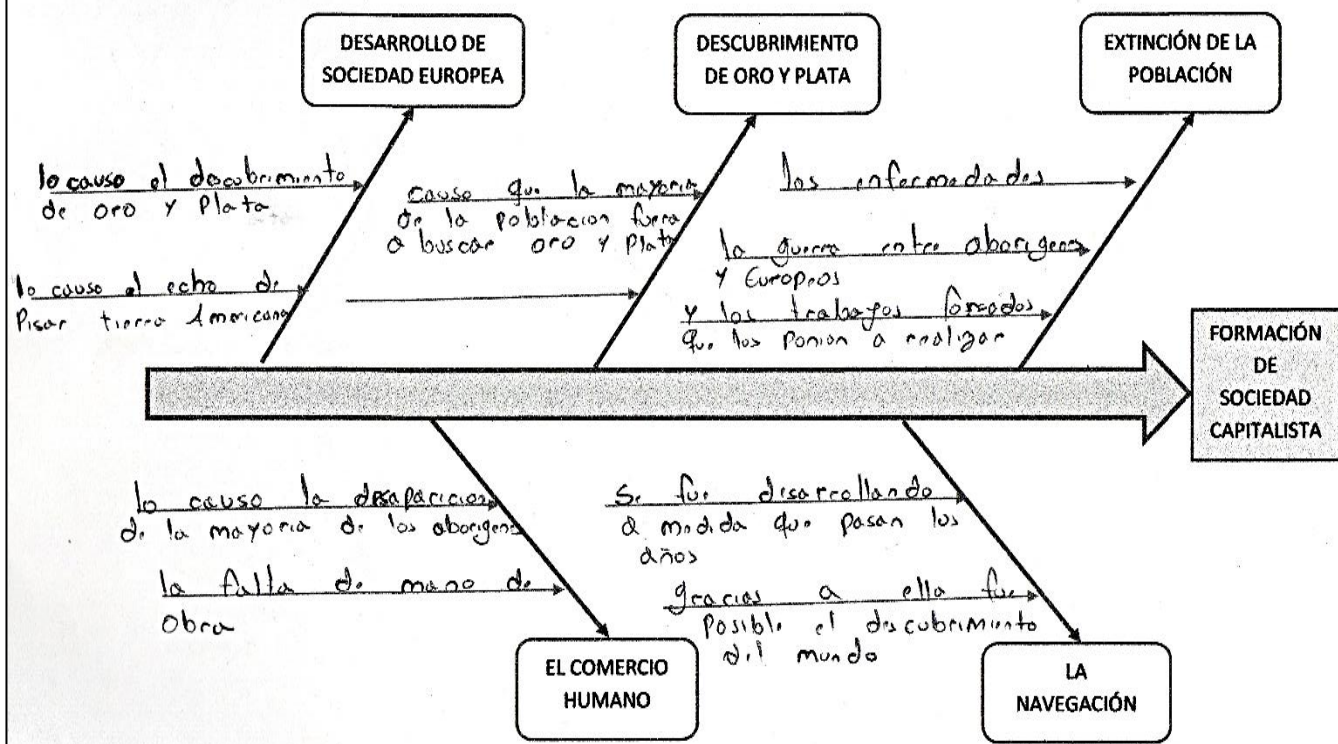 DESARROLLO DE
SOCIEDAD EUROPEA
DESCUBRIMIENTO
DE ORO Y PLATA
EXTINCIÓN DE LA
POBLACIÓN
lo causo el descubrimiento
de oro y Plata
lo causo el echo de
Pisar tierra Americana
causo que la mayoria
de la poblacion fuera
a buscar oro y Plata
las enfermedades
la guerra entre aborigenes
y Europeos
y los trabajos forsados
que los ponian a realizar
FORMACIÓN
DE
SOCIEDAD
CAPITALISTA
lo causo la desaparicion
de la mayoria de los aborigenes
la falta de mano de
obra
EL COMERCIO
HUMANO
Se fue desarrollando
a medida que pasan los
años
gracias a ella fue
posible el descubrimiento
del mundo
LA
NAVEGACIÓN